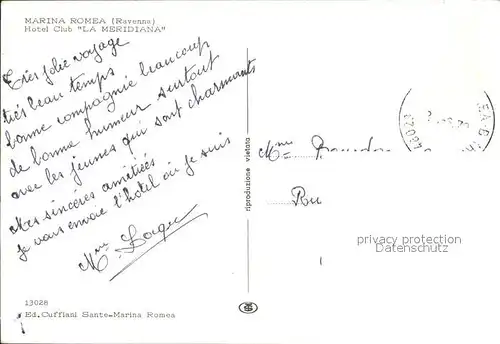 MARINA ROMEA (Ravenna)
Hotel Club "LA MERIDIANA"
Très jolie voyage
très beau temps
bonne compagnie beaucoup
de bonne humeur surtout
avec les jeunes qui sont charmants
Mes sincères amitiées
je vous envoie l'hôtel où je suis
Mme
Mme
riproduzione vietata
privacy protection
www.oldthing.com
13028
Ed.Cuffiani Sante-Marina Romea